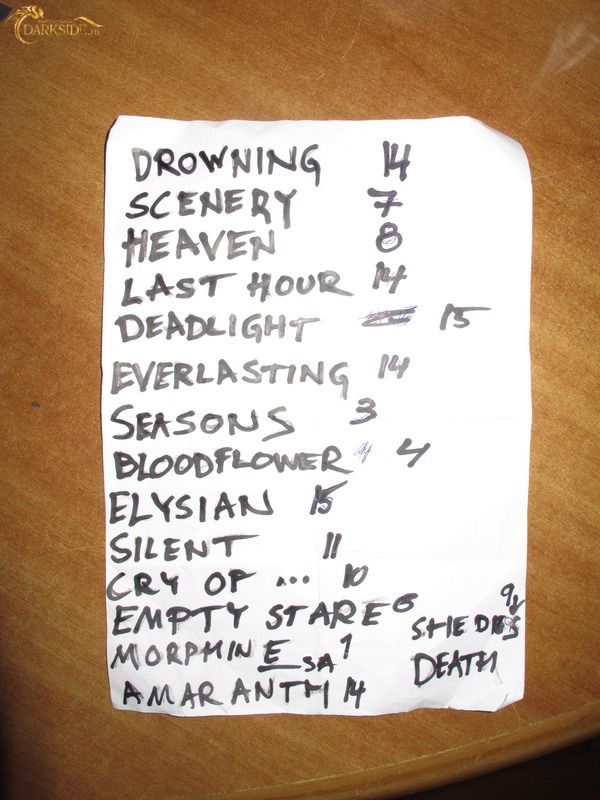 DARKSIDE.ru
DROWNING 14
SCENERY 7
HEAVEN 8
LAST HOUR 14
DEADLIGHT 15
EVERLASTING 14
SEASONS 3
BLOODFLOWER 4
ELYSIAN 15
SILENT 11
CRY OF ... 10
EMPTY STARE 6
MORPHINE SA 1
AMARANTH 14
SHE DIES
DEATH